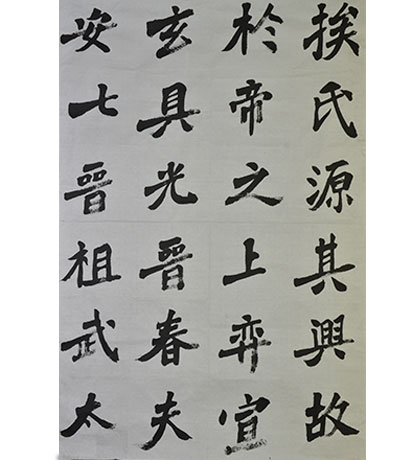 挨氏源其興故
於帝之上弈宣
玄具光晉春夫
安七晉祖武太